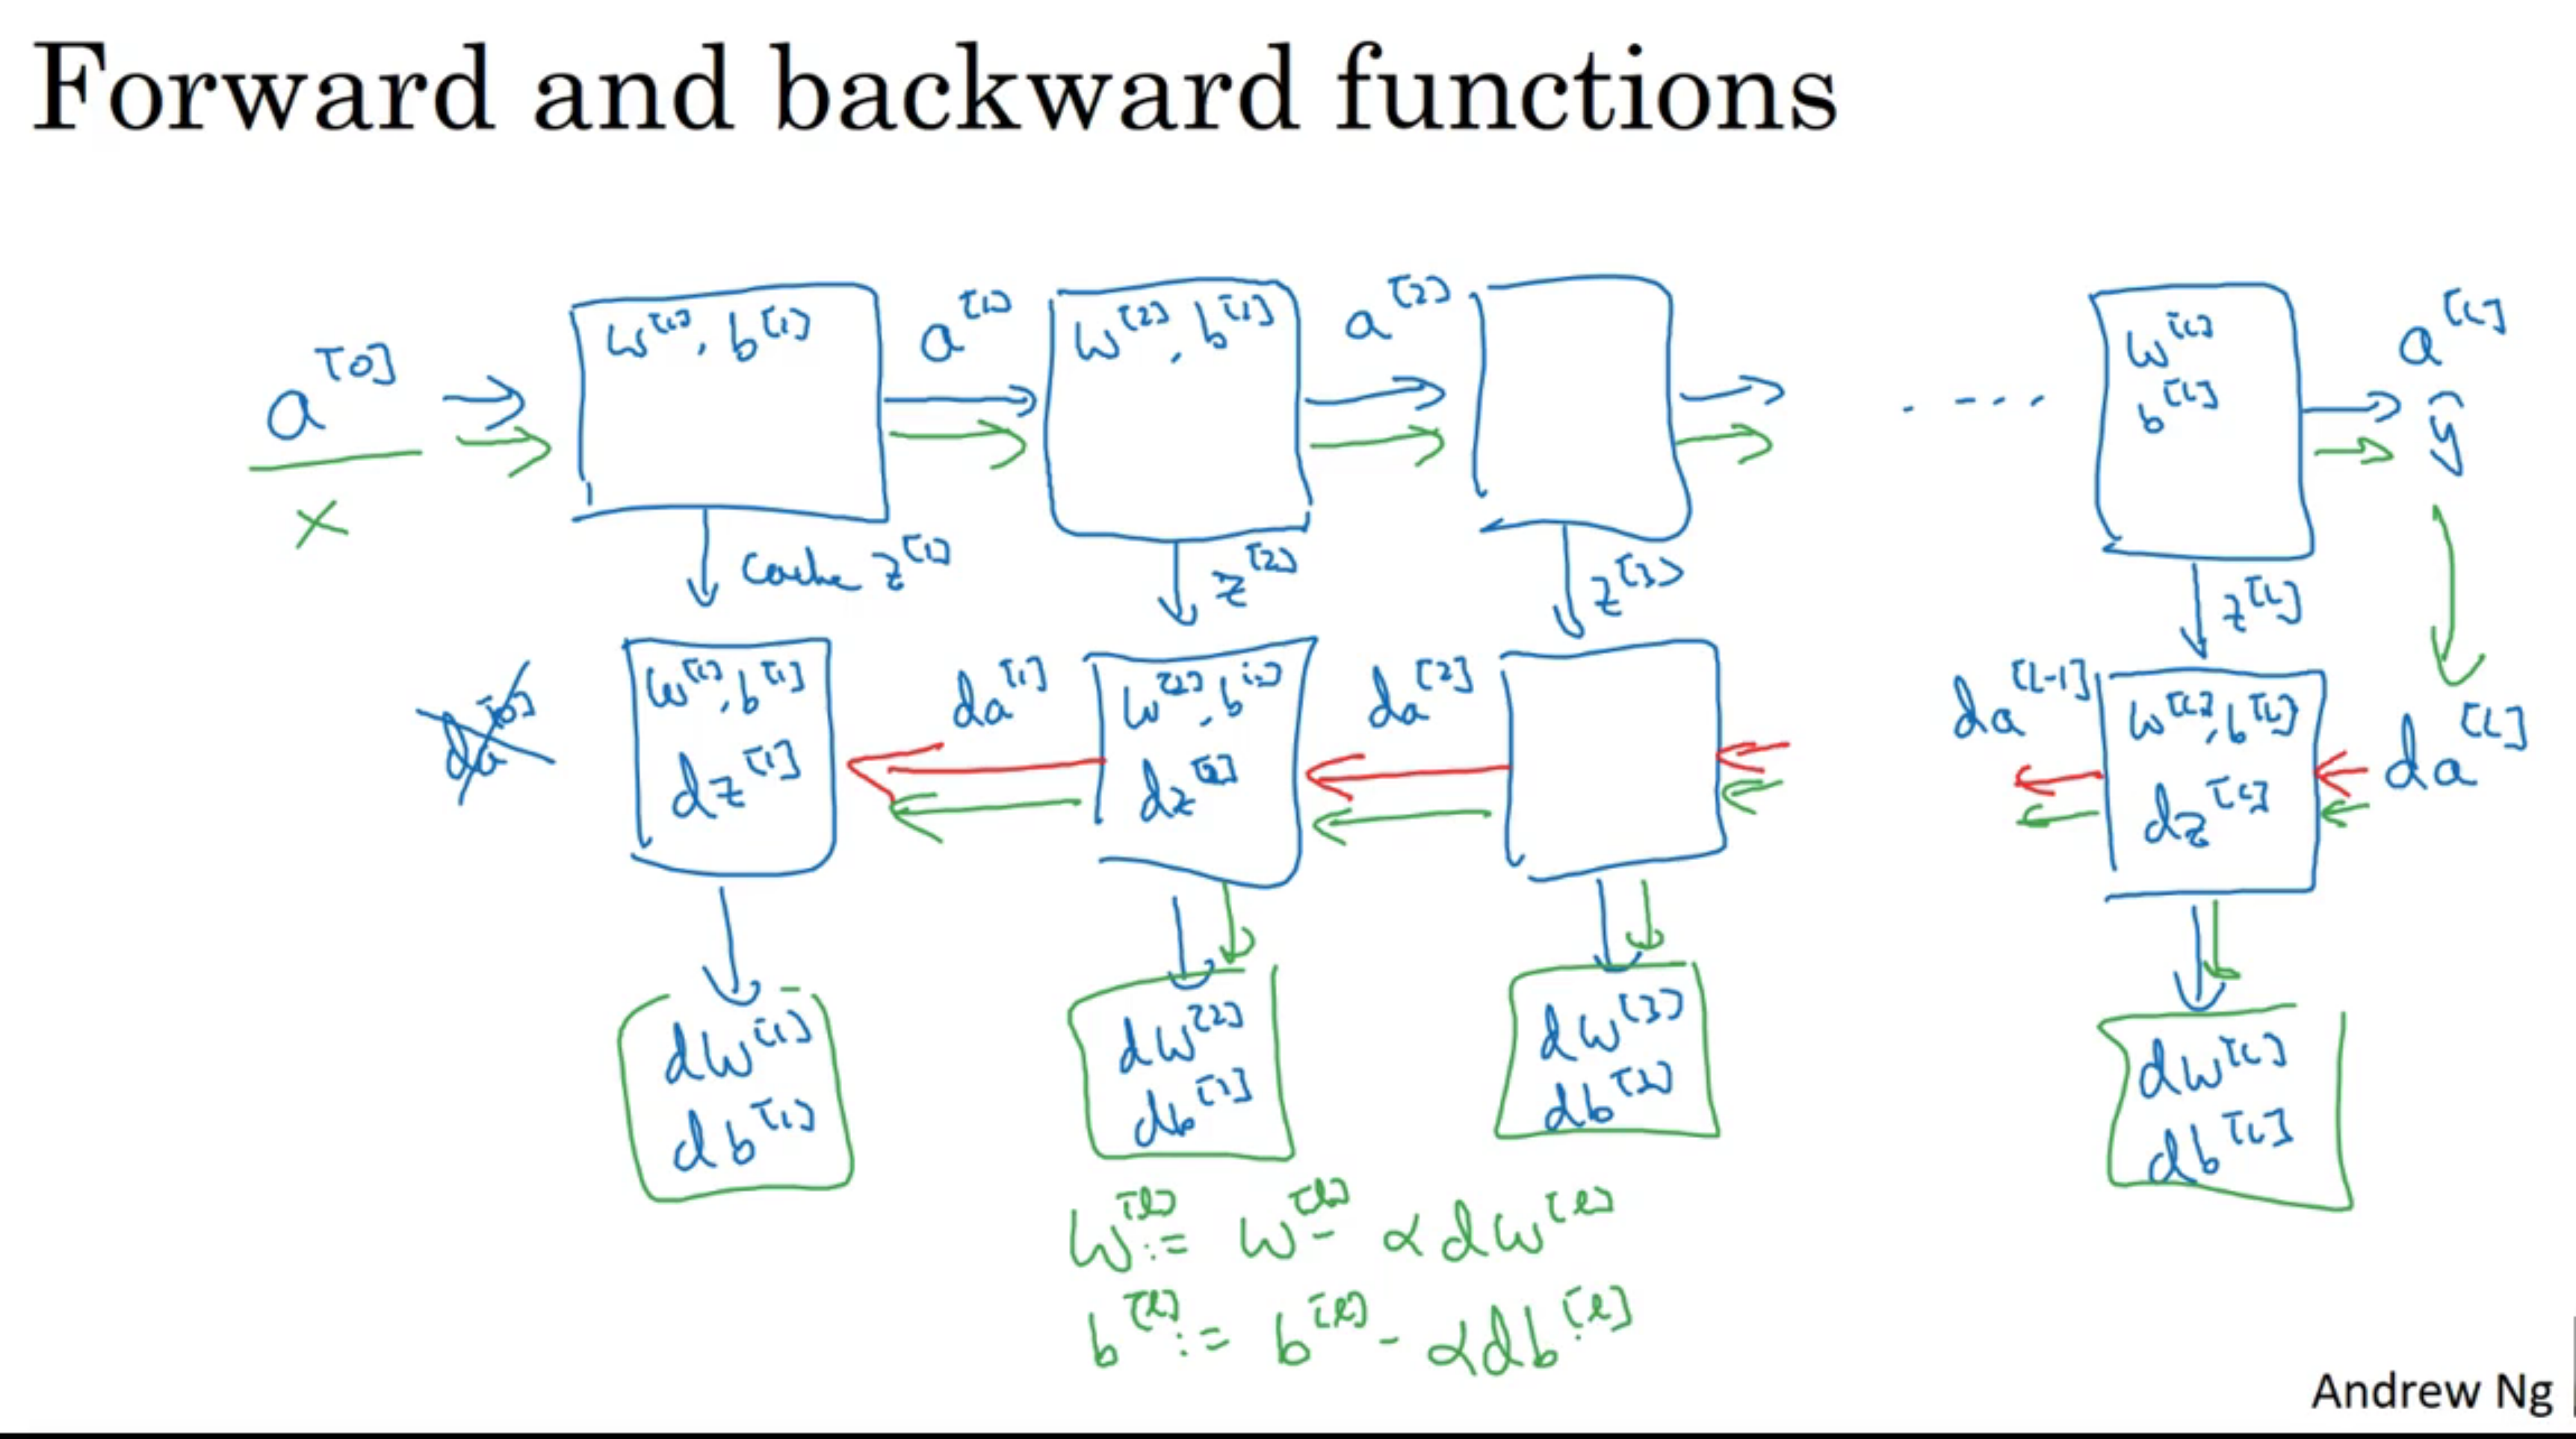 Forward and backward functions
a^[0] w^[1], b^[1] a^[1] w^[2], b^[2] a^[2] .... w^[L] a^[L]
b^[L] ŷ
x
cache z^[1] z^[2] z^[3] z^[L]
da^[0] w^[1], b^[1] da^[1] w^[2], b^[2] da^[2] da^[L-1] w^[L], b^[L] da^[L]
dz^[1] dz^[2] dz^[L]
dw^[1] dw^[2] dw^[3] dw^[L]
db^[1] db^[2] db^[3] db^[L]
W^[l] := W^[l] - α dw^[l]
b^[l] := b^[l] - α db^[l]
Andrew Ng